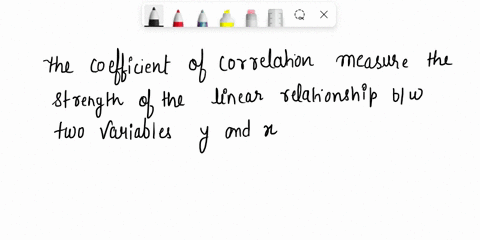 the coefficient of correlation measure the
strength of the linear relationship b/w
two variables y and x